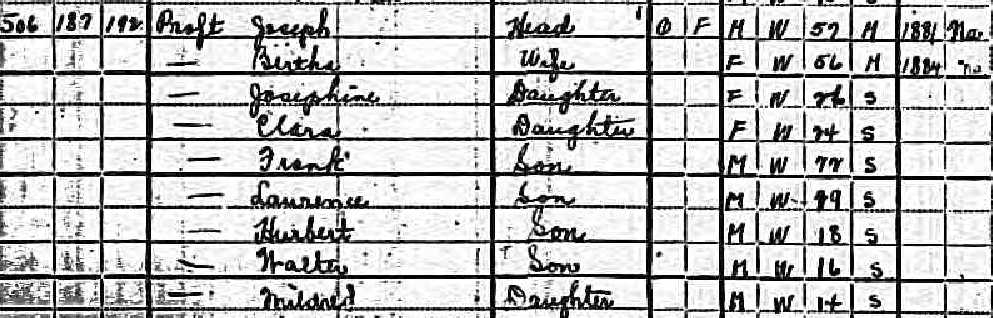 506 187 192 Proft Joseph Head 1 O F M W 57 M 1881 Na
— Bertha Wife F W 56 M 1884 Na
— Josephine Daughter F W 26 S
— Clara Daughter F W 24 S
— Frank Son M W 22 S
— Laurence Son M W S
— Hurbert Son M W 18 S
— Walter Son M W 16 S
— Mildred Daughter M W 14 S